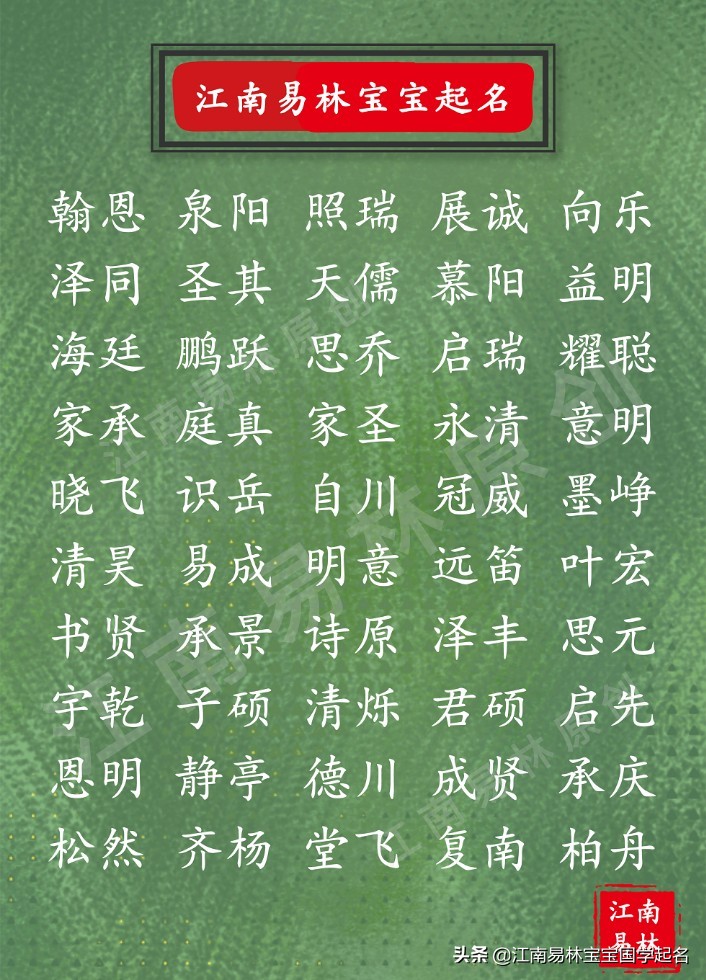 江南易林宝宝起名
翰恩 泉阳 照瑞 展诚 向乐
泽同 圣其 天儒 慕阳 益明
海廷 鹏跃 思乔 启瑞 耀聪
家承 庭真 家圣 永清 意明
晓飞 识岳 自川 冠威 墨峥
清昊 易成 明意 远笛 叶宏
书贤 承景 诗原 泽丰 思元
宇乾 子硕 清烁 君硕 启先
恩明 静亭 德川 成贤 承庆
松然 齐杨 堂飞 复南 柏舟
江南易林原创
江南易林原创
江南易林原创
江南
易林
头条 @江南易林宝宝国学起名